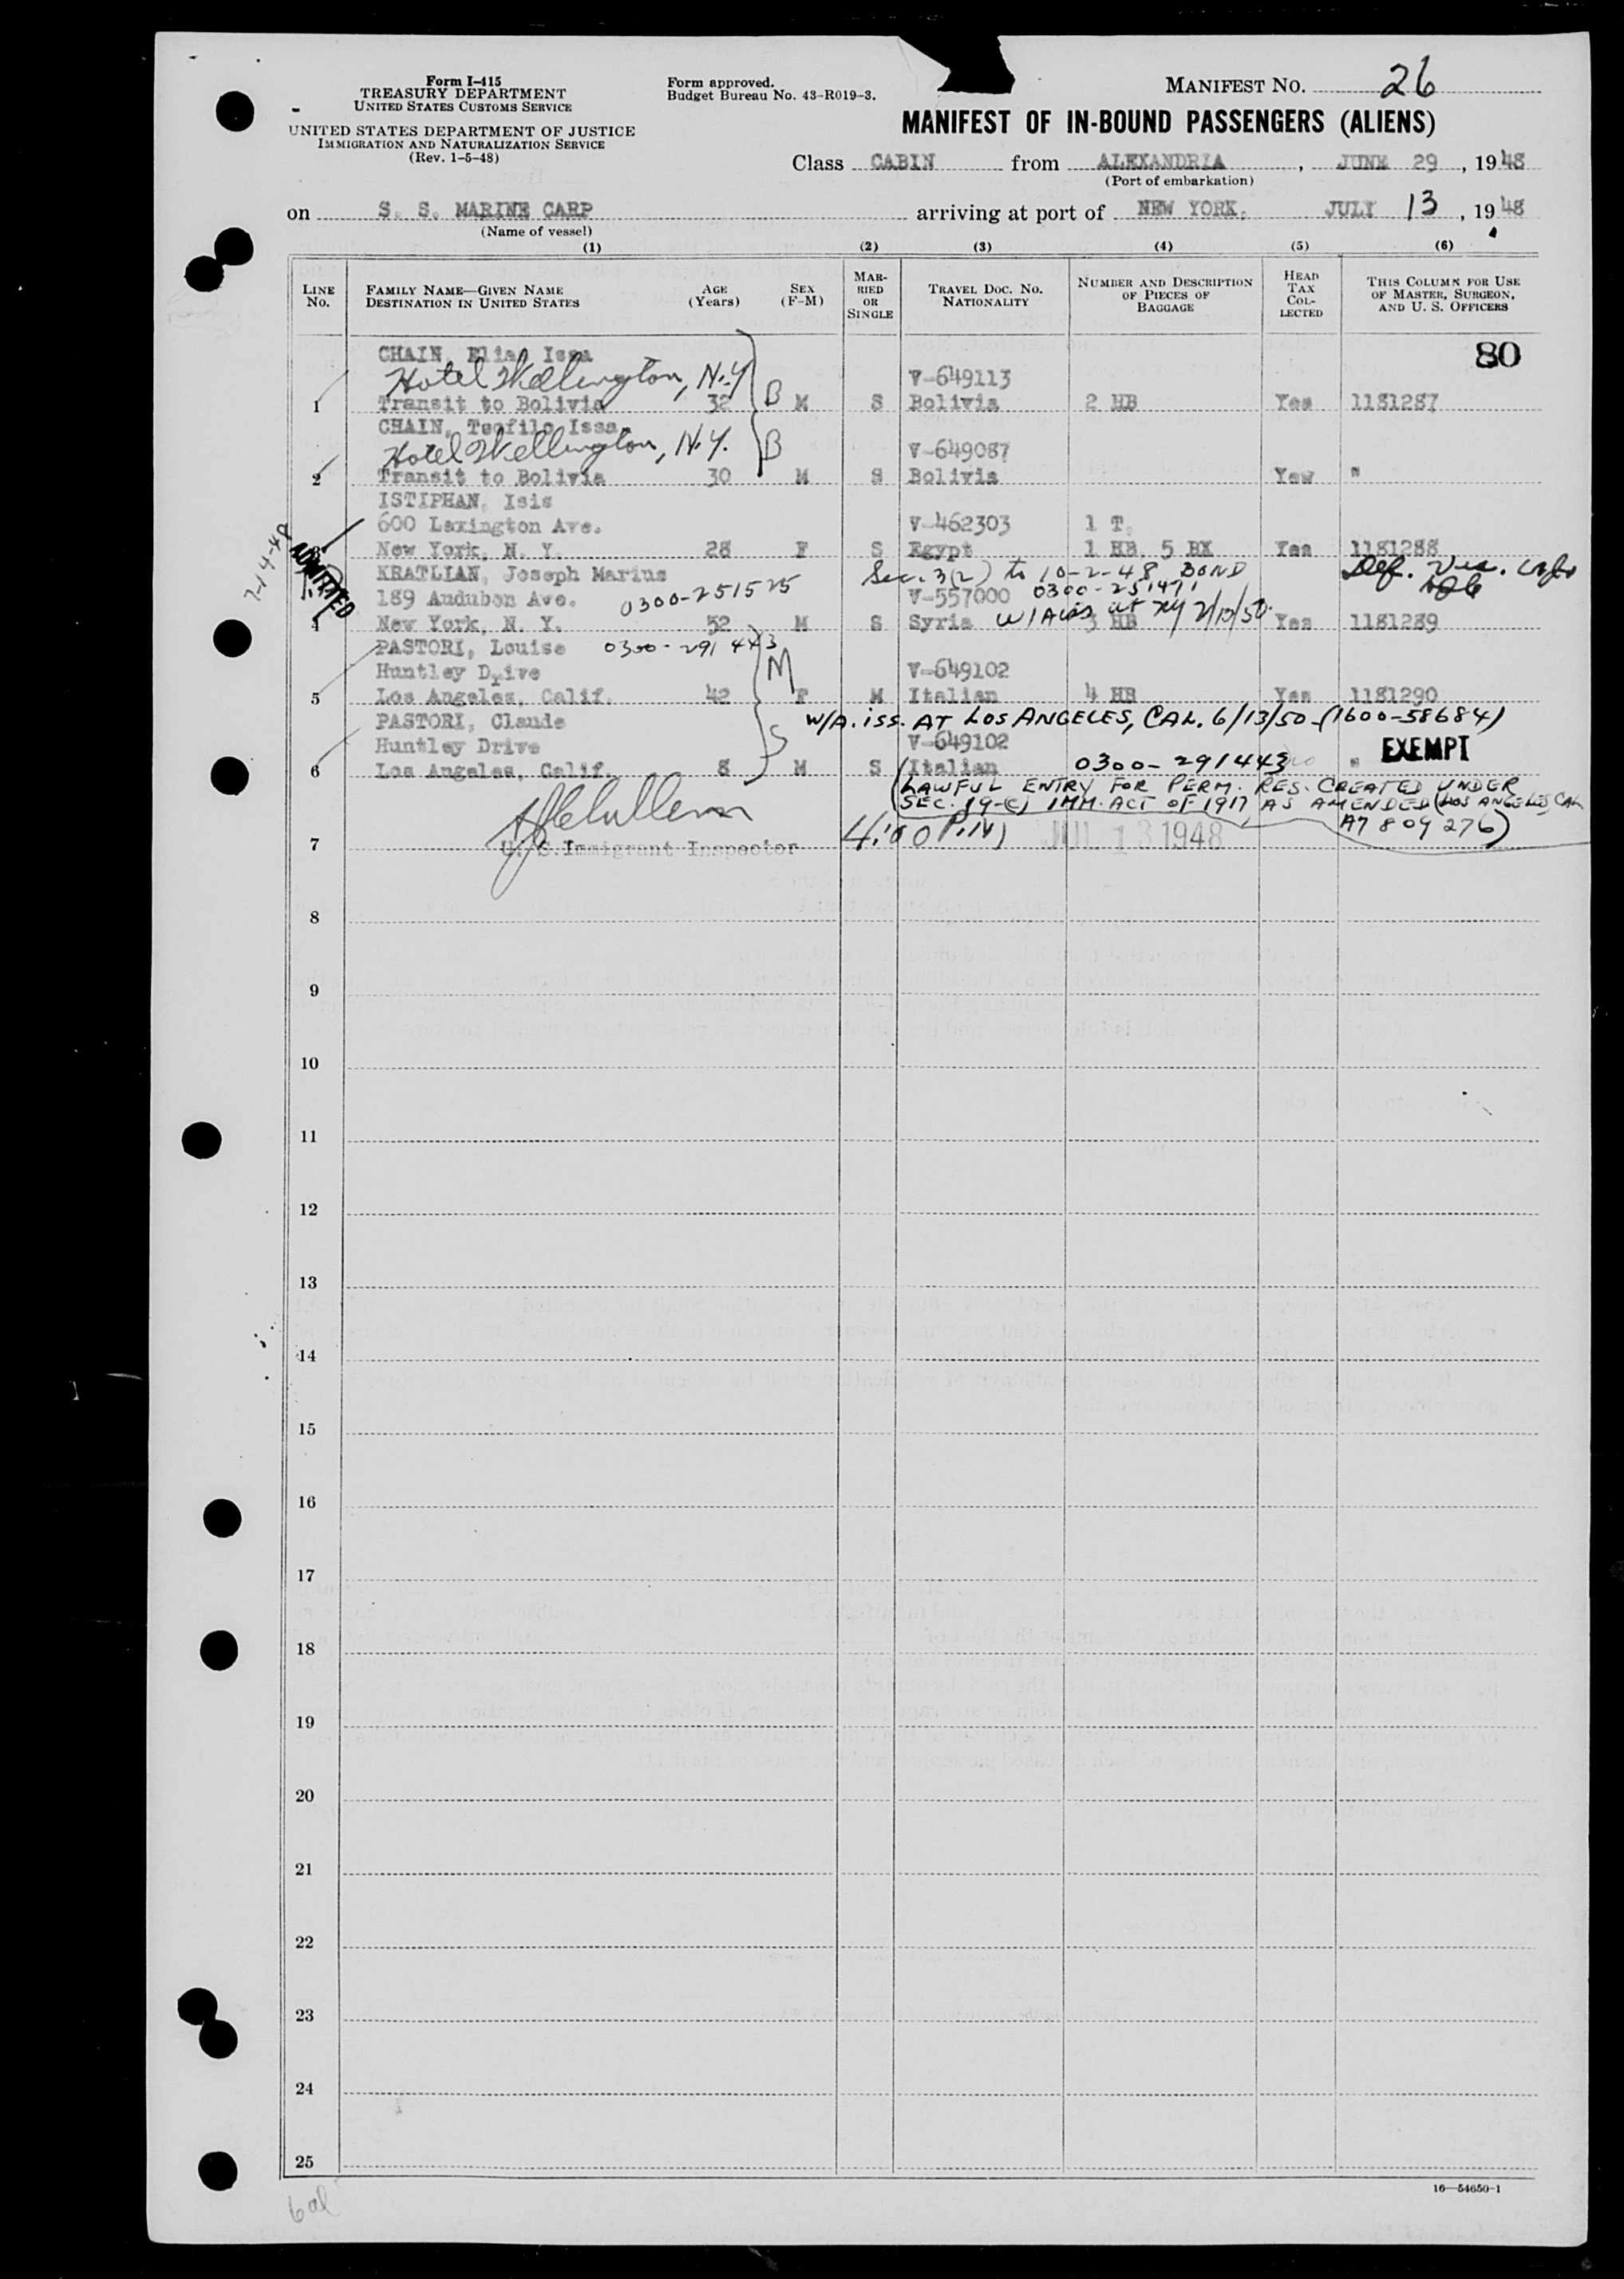 Form I-415
TREASURY DEPARTMENT
UNITED STATES CUSTOMS SERVICE
UNITED STATES DEPARTMENT OF JUSTICE
IMMIGRATION AND NATURALIZATION SERVICE
(Rev. 1-5-48)
Form approved.
Budget Bureau No. 43-R019-3.
MANIFEST NO. 26
MANIFEST OF IN-BOUND PASSENGERS (ALIENS)
Class CABIN from ALEXANDRIA, JUNE 29, 1948
(Port of embarkation)
on S. S. MARINE CARP arriving at port of NEW YORK, JULY 13, 1948
(Name of vessel)
(1) (2) (3) (4) (5) (6)
LINE No. FAMILY NAME—GIVEN NAME DESTINATION IN UNITED STATES AGE (Years) SEX (F-M) MARRIED OR SINGLE TRAVEL DOC. NO. NATIONALITY NUMBER AND DESCRIPTION OF PIECES OF BAGGAGE HEAD TAX COLLECTED THIS COLUMN FOR USE OF MASTER, SURGEON, AND U. S. OFFICERS
80
CHAIN, Elias Issa
Hotel Wellington, N.Y. V-649113
1 Transit to Bolivia 32 B M S Bolivia 2 HB Yes 1181287
CHAIN, Teofilo Issa
Hotel Wellington, N.Y. B V-649087
2 Transit to Bolivia 30 M S Bolivia Yew "
ISTIPHAN, Isis
600 Lexington Ave. V-462303 1 T.
3 New York, N. Y. 28 F S Egypt 1 HB, 5 BX Yes 1181288
7-14-48 ADMITTED
KRATLIAN, Joseph Marius Sec. 3(2) to 10-2-48 BOND Def.
189 Audubon Ave. 0300-251525 V-557000 0300-251471
4 New York, N. Y. 52 M S Syria W/A iss at NY 2/13/50 3 HB Yes 1181289
PASTORI, Louise 0300-291443
Huntley Drive M V-649102
5 Los Angeles, Calif. 42 F M Italian 4 HB Yes 1181290
PASTORI, Claude W/A. iss. AT LOS ANGELES, CAL. 6/13/50-(1600-58684)
Huntley Drive S V-649102 EXEMPT
6 Los Angeles, Calif. 8 M S Italian 0300-291443 "
(LAWFUL ENTRY FOR PERM. RES. CREATED UNDER
SEC. 19-(c) IMM. ACT OF 1917, AS AMENDED (LOS ANGELES, CAL
A7 809 276)
7 U. S. Immigrant Inspector 4:00 P.M JUL 13 1948
8
9
10
11
12
13
14
15
16
17
18
19
20
21
22
23
24
25
16—54650-1